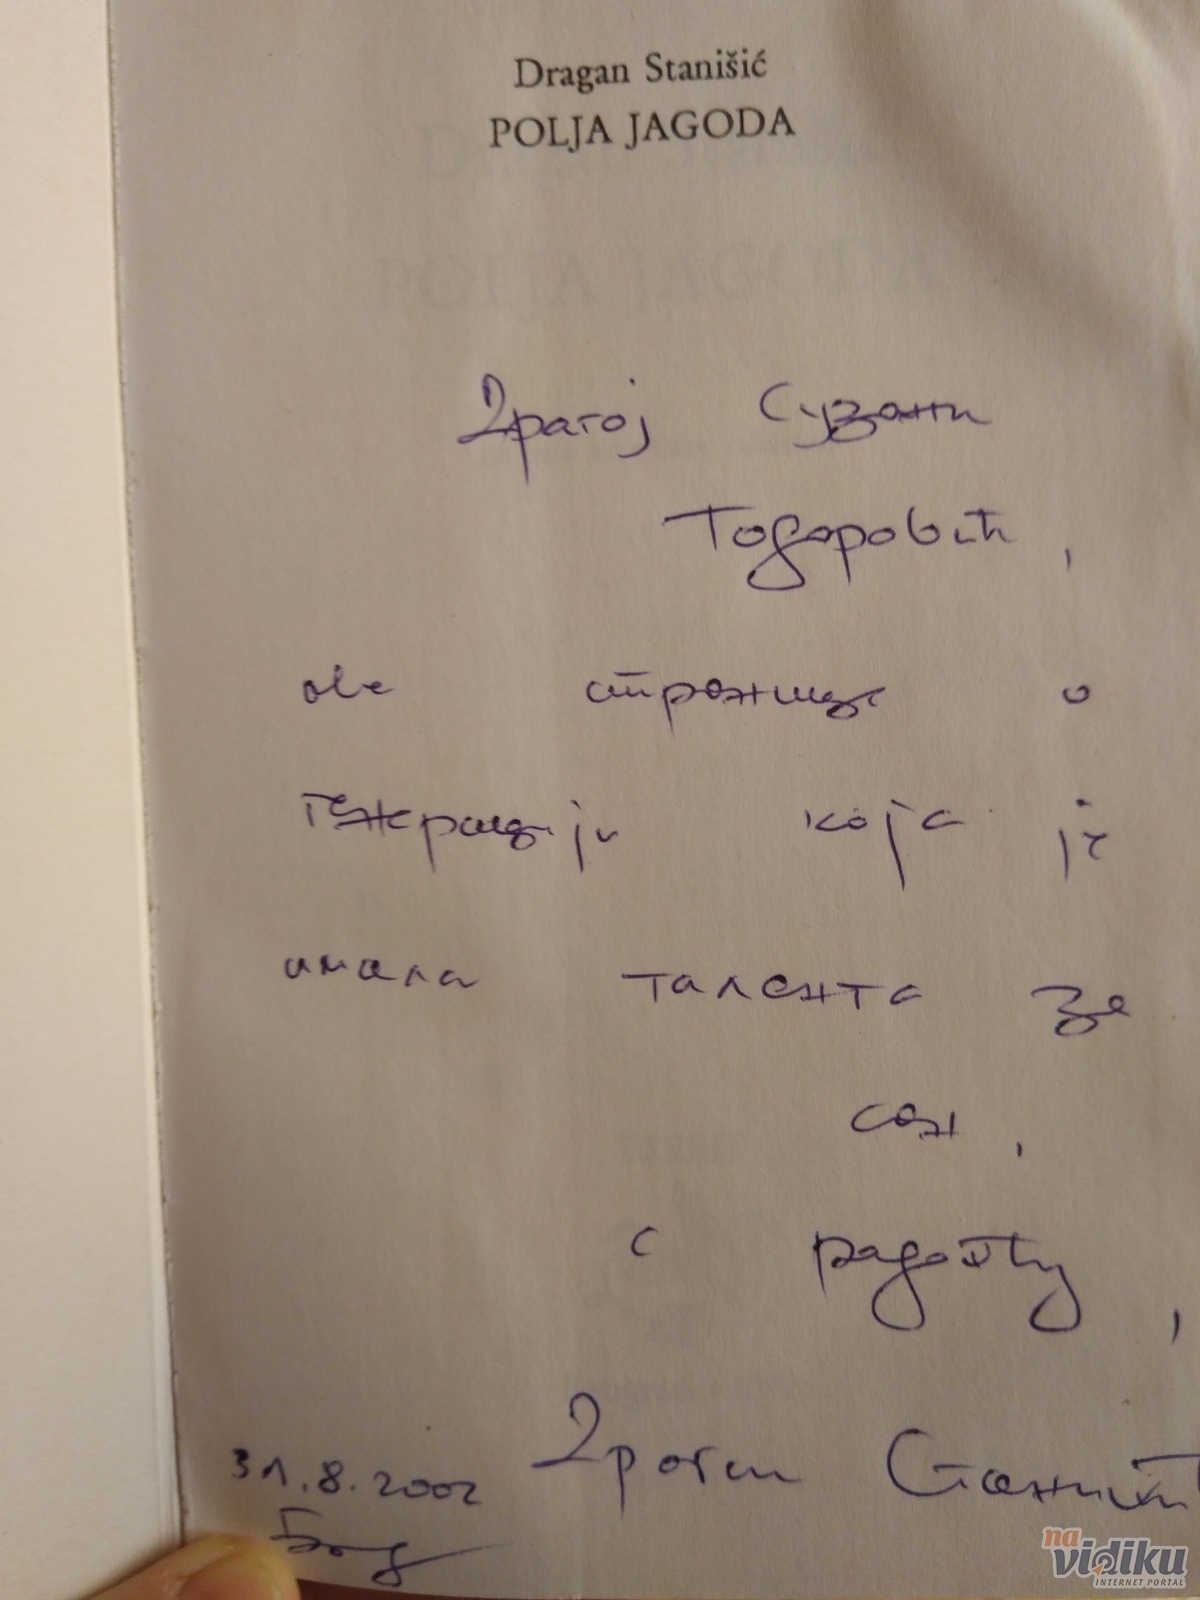 Dragan Stanišić
POLJA JAGODA
Драгој Сузани
Тодоровић,
ове странице о
генерацији која је
имала талента за
сан,
с радошћу,
Драган Станишић
31.8.2002
na
vidiku
INTERNET PORTAL